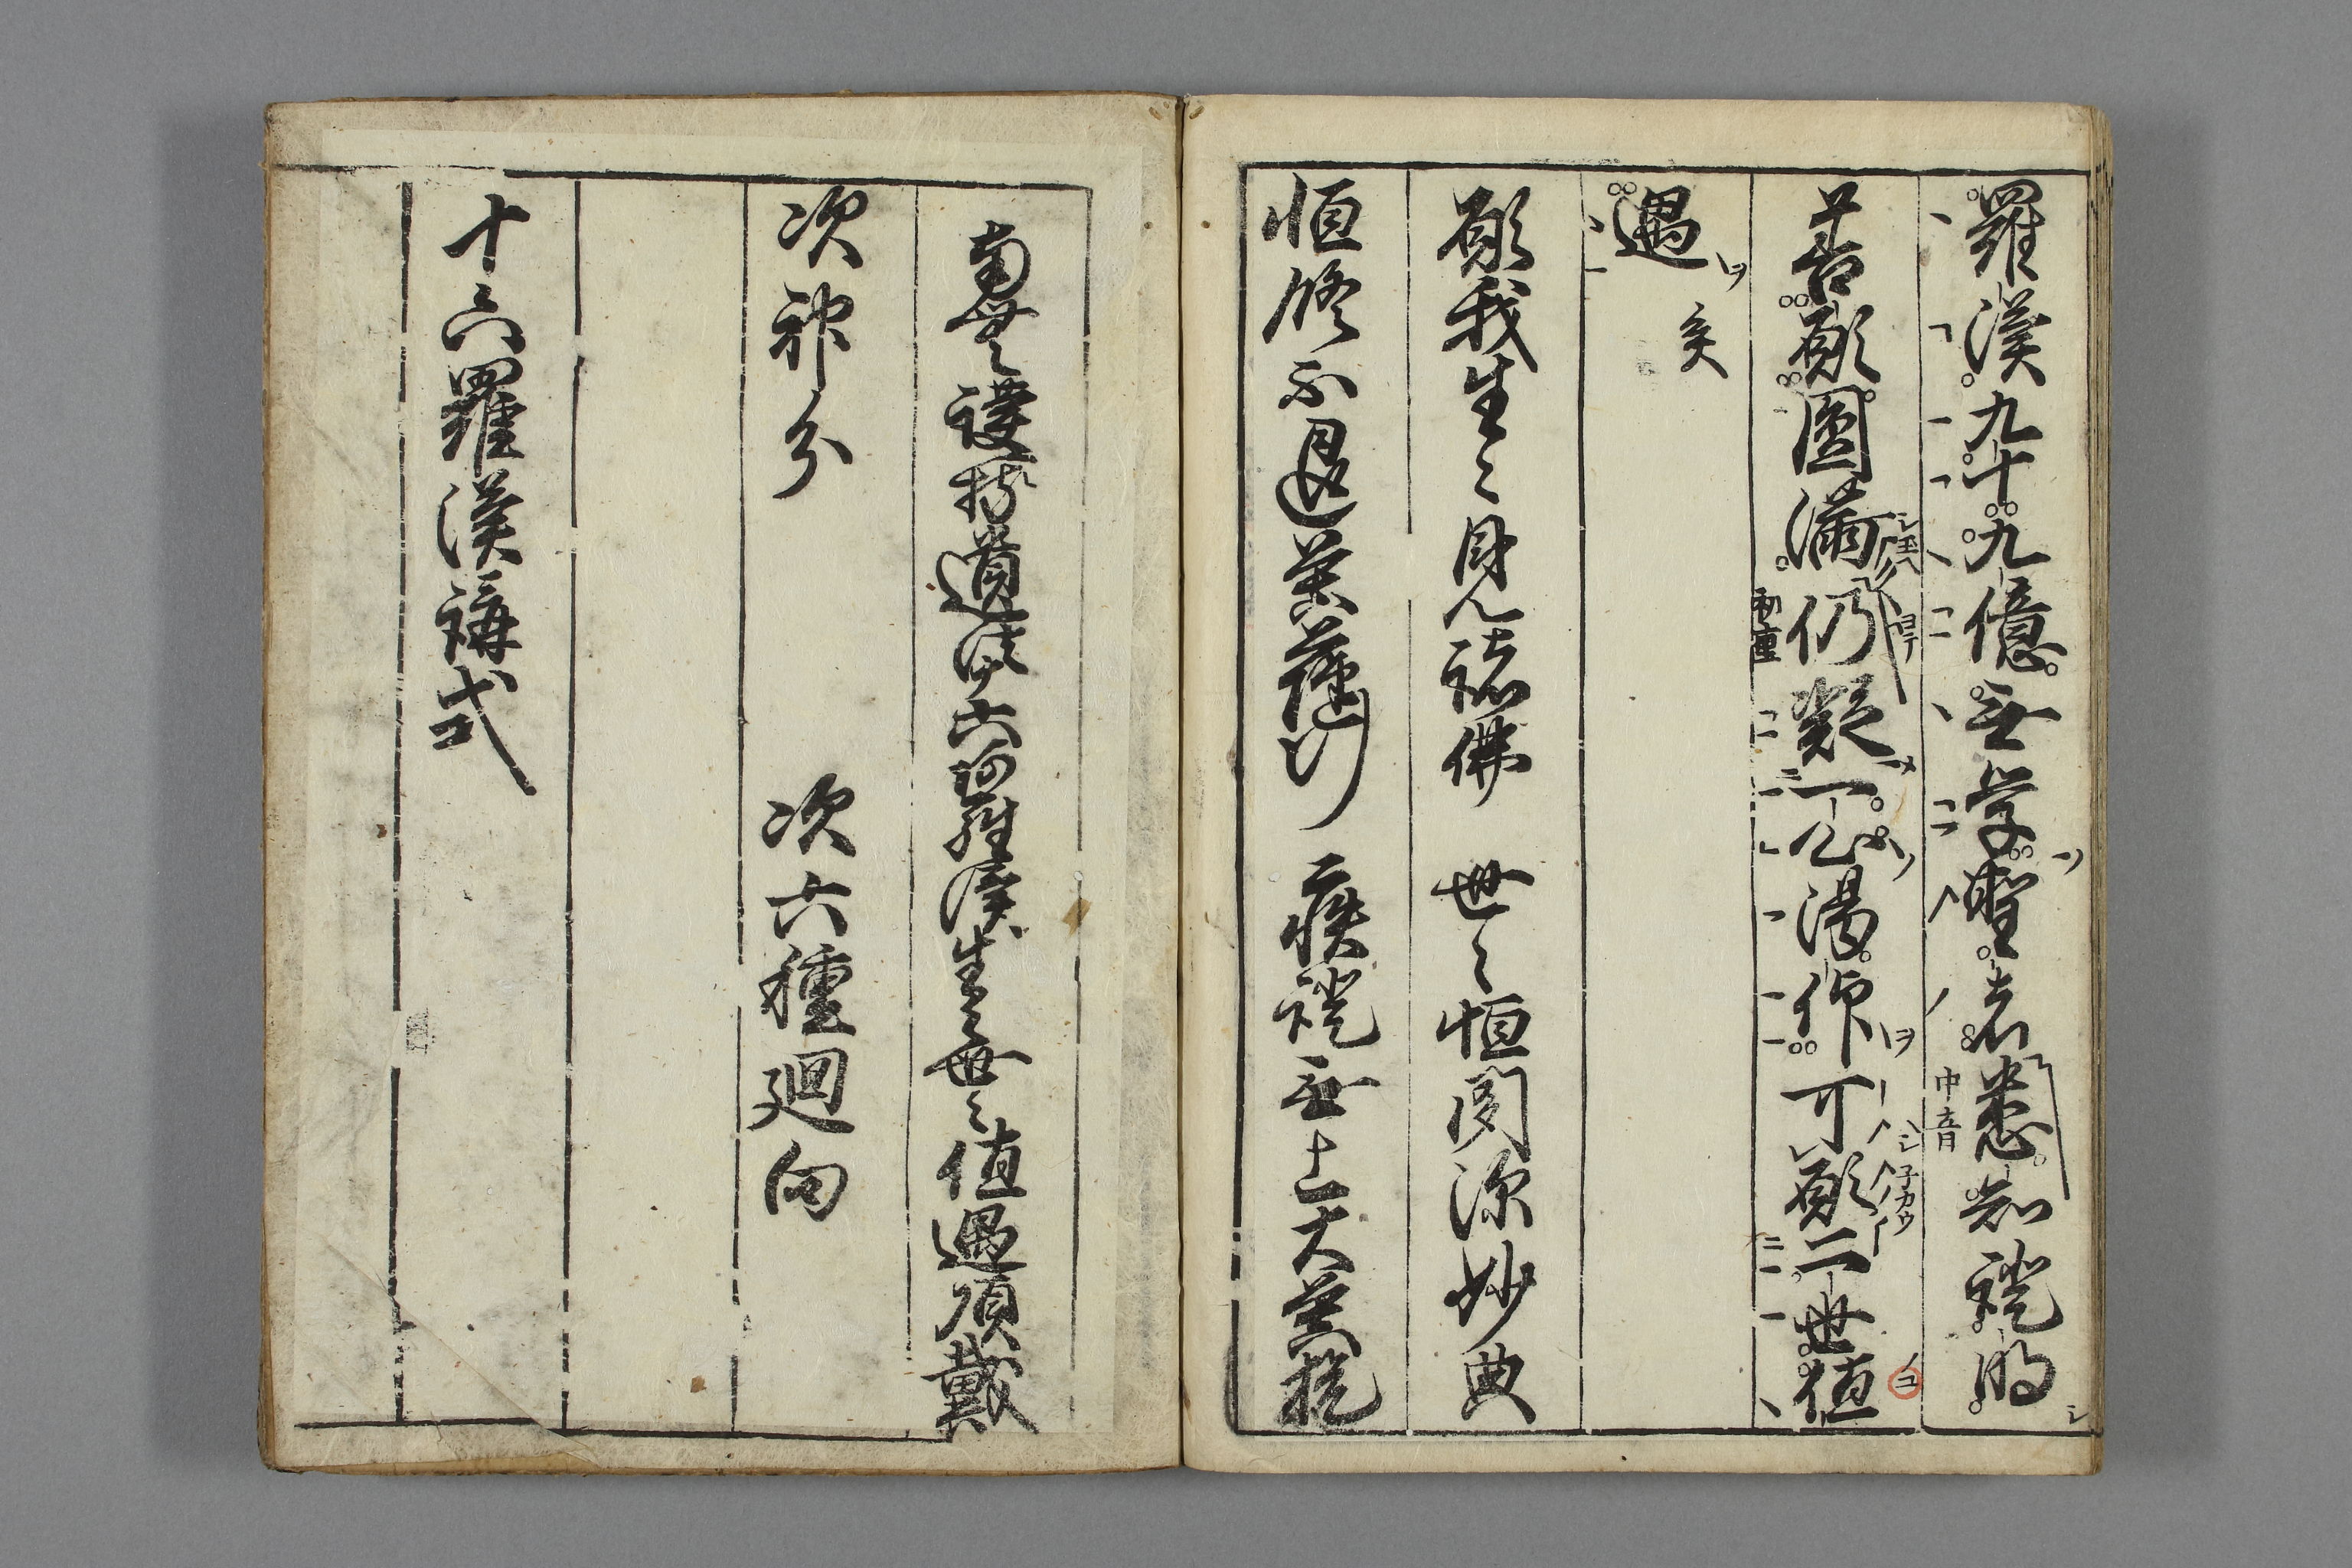 羅漢九十九億无学聖者悉知證明
善願圓満仍凝一心渇仰可願二世値
遇矣
願我生々見諸佛　世々恒聞深妙典
恒修不退菩薩行　疾證无上大菩提
南無々護持遺法十六阿羅漢生々世々値遇頂戴
次神分　次六種廻向
十六羅漢講式